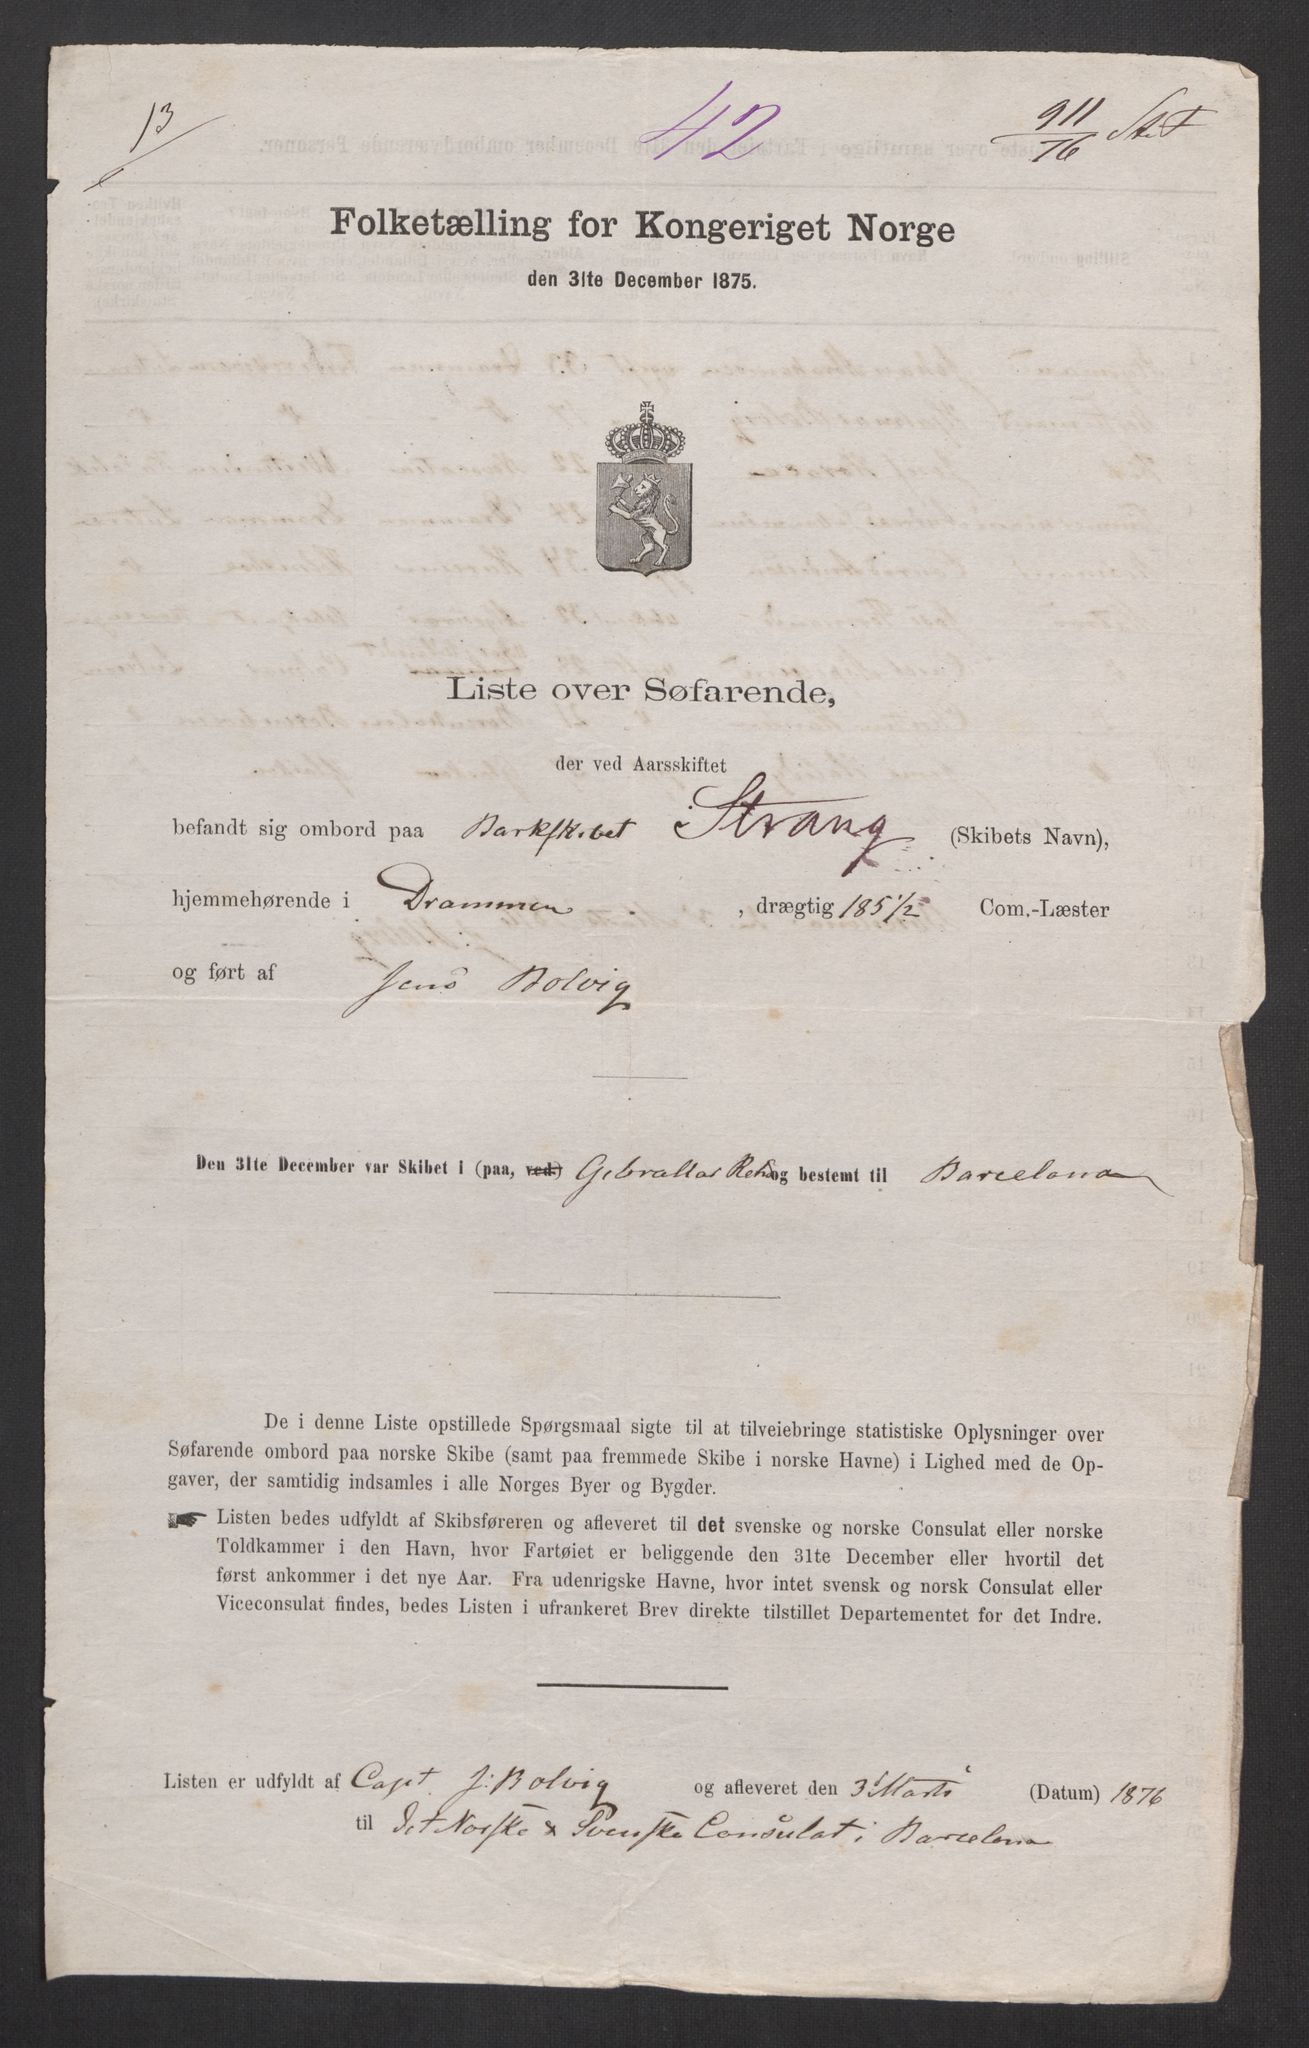 13
42
911/76 St. F
Folketælling for Kongeriget Norge
den 31te December 1875.
Liste over Søfarende,
der ved Aarsskiftet
befandt sig ombord paa Barkskibet Strang (Skibets Navn),
hjemmehørende i Drammen, drægtig 185 1/2 Com.-Læster
og ført af Jens Bolvig
Den 31te December var Skibet i (paa, ved) Gibraltar Red og bestemt til Barcelona
De i denne Liste opstillede Spørgsmaal sigte til at tilveiebringe statistiske Oplysninger over
Søfarende ombord paa norske Skibe (samt paa fremmede Skibe i norske Havne) i Lighed med de Op-
gaver, der samtidig indsamles i alle Norges Byer og Bygder.
☛ Listen bedes udfyldt af Skibsføreren og afleveret til det svenske og norske Consulat eller norske
Toldkammer i den Havn, hvor Fartøiet er beliggende den 31te December eller hvortil det
først ankommer i det nye Aar. Fra udenrigske Havne, hvor intet svensk og norsk Consulat eller
Viceconsulat findes, bedes Listen i ufrankeret Brev direkte tilstillet Departementet for det Indre.
Listen er udfyldt af Capt J: Bolvig og afleveret den 3 Marts (Datum) 1876
til Det Norske & Svenske Consulat i Barcelona